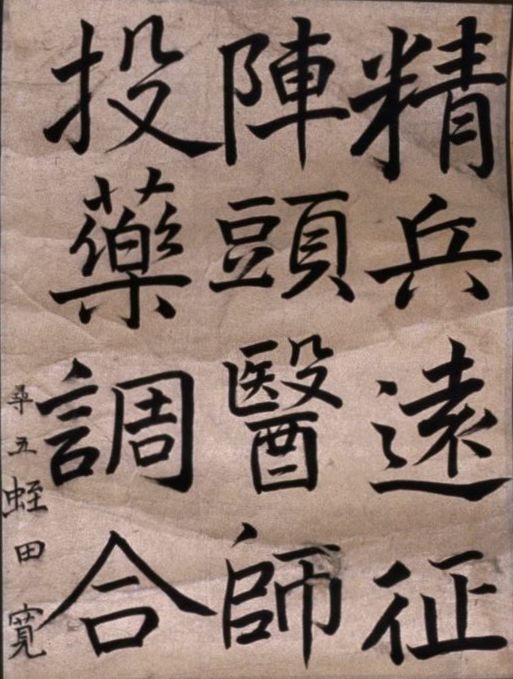 精兵遠征
陣頭醫師
投藥調合
尋五蛭田寛